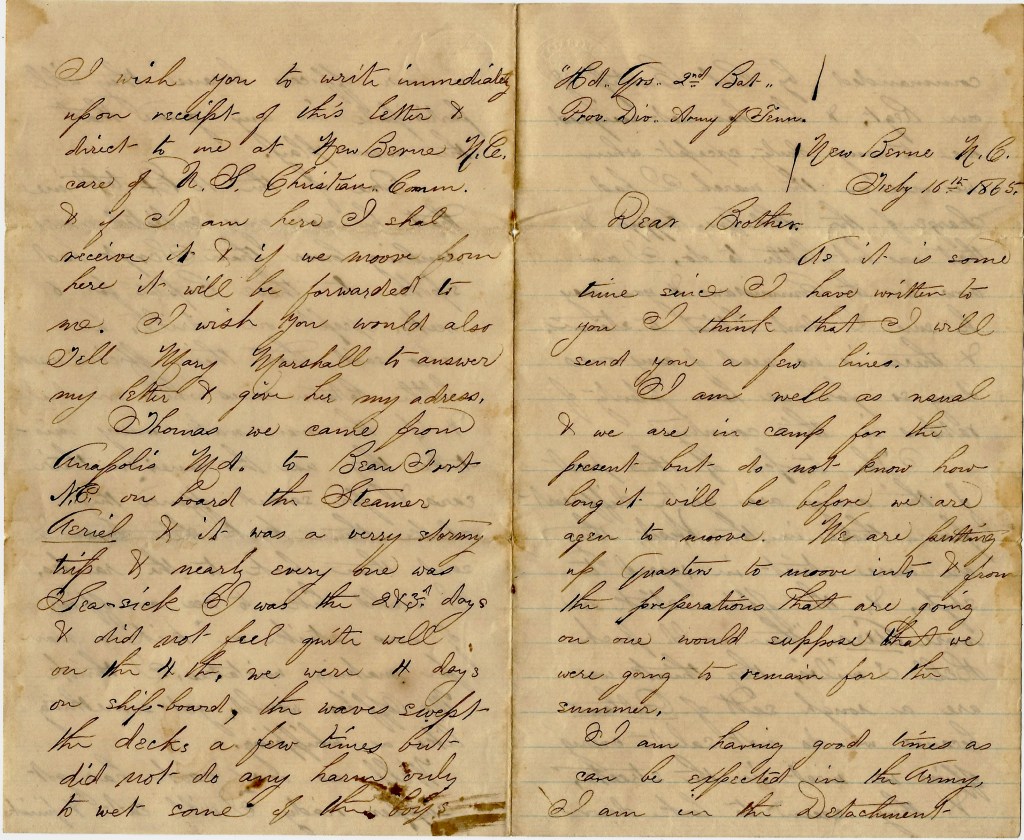 I wish you to write immediately
upon receipt of this letter &
direct to me at New Berne N.C.
care of U. S. Christian. Comm.
& if I am here I shal
receive it & if we moove from
here it will be forwarded to
me. I wish you would also
Tell Mary Marshall to answer
my letter & give her my adress.
Thomas we came from
Anapolis Md. to Beau Fort
N.C. on board the Steamer
Aeriel & it was a very stormy
trip & nearly every one was
Sea-sick I was the 2 & 3rd days
& did not feel quite well
on the 4th, we were 4 days
on ship-board, the waves swept
the decks a few times but
did not do any harm only
to wet some of the boys
"Hd.. Qrs.. 2nd Bat..
Prov. Div. Army of Tenn.
New Berne N. C.
Feby 16th 1865.
Dear Brother.
As it is some
time since I have written to
you I think that I will
send you a few lines.
I am well as usual
& we are in camp for the
present but do not know how
long it will be before we are
agen to moove. We are putting
up Quarters to moove into & from
the preperations that are going
on one would suppose that we
were going to remain for the
summer.
I am having good times as
can be expected in the Army.
I am in the Detachment